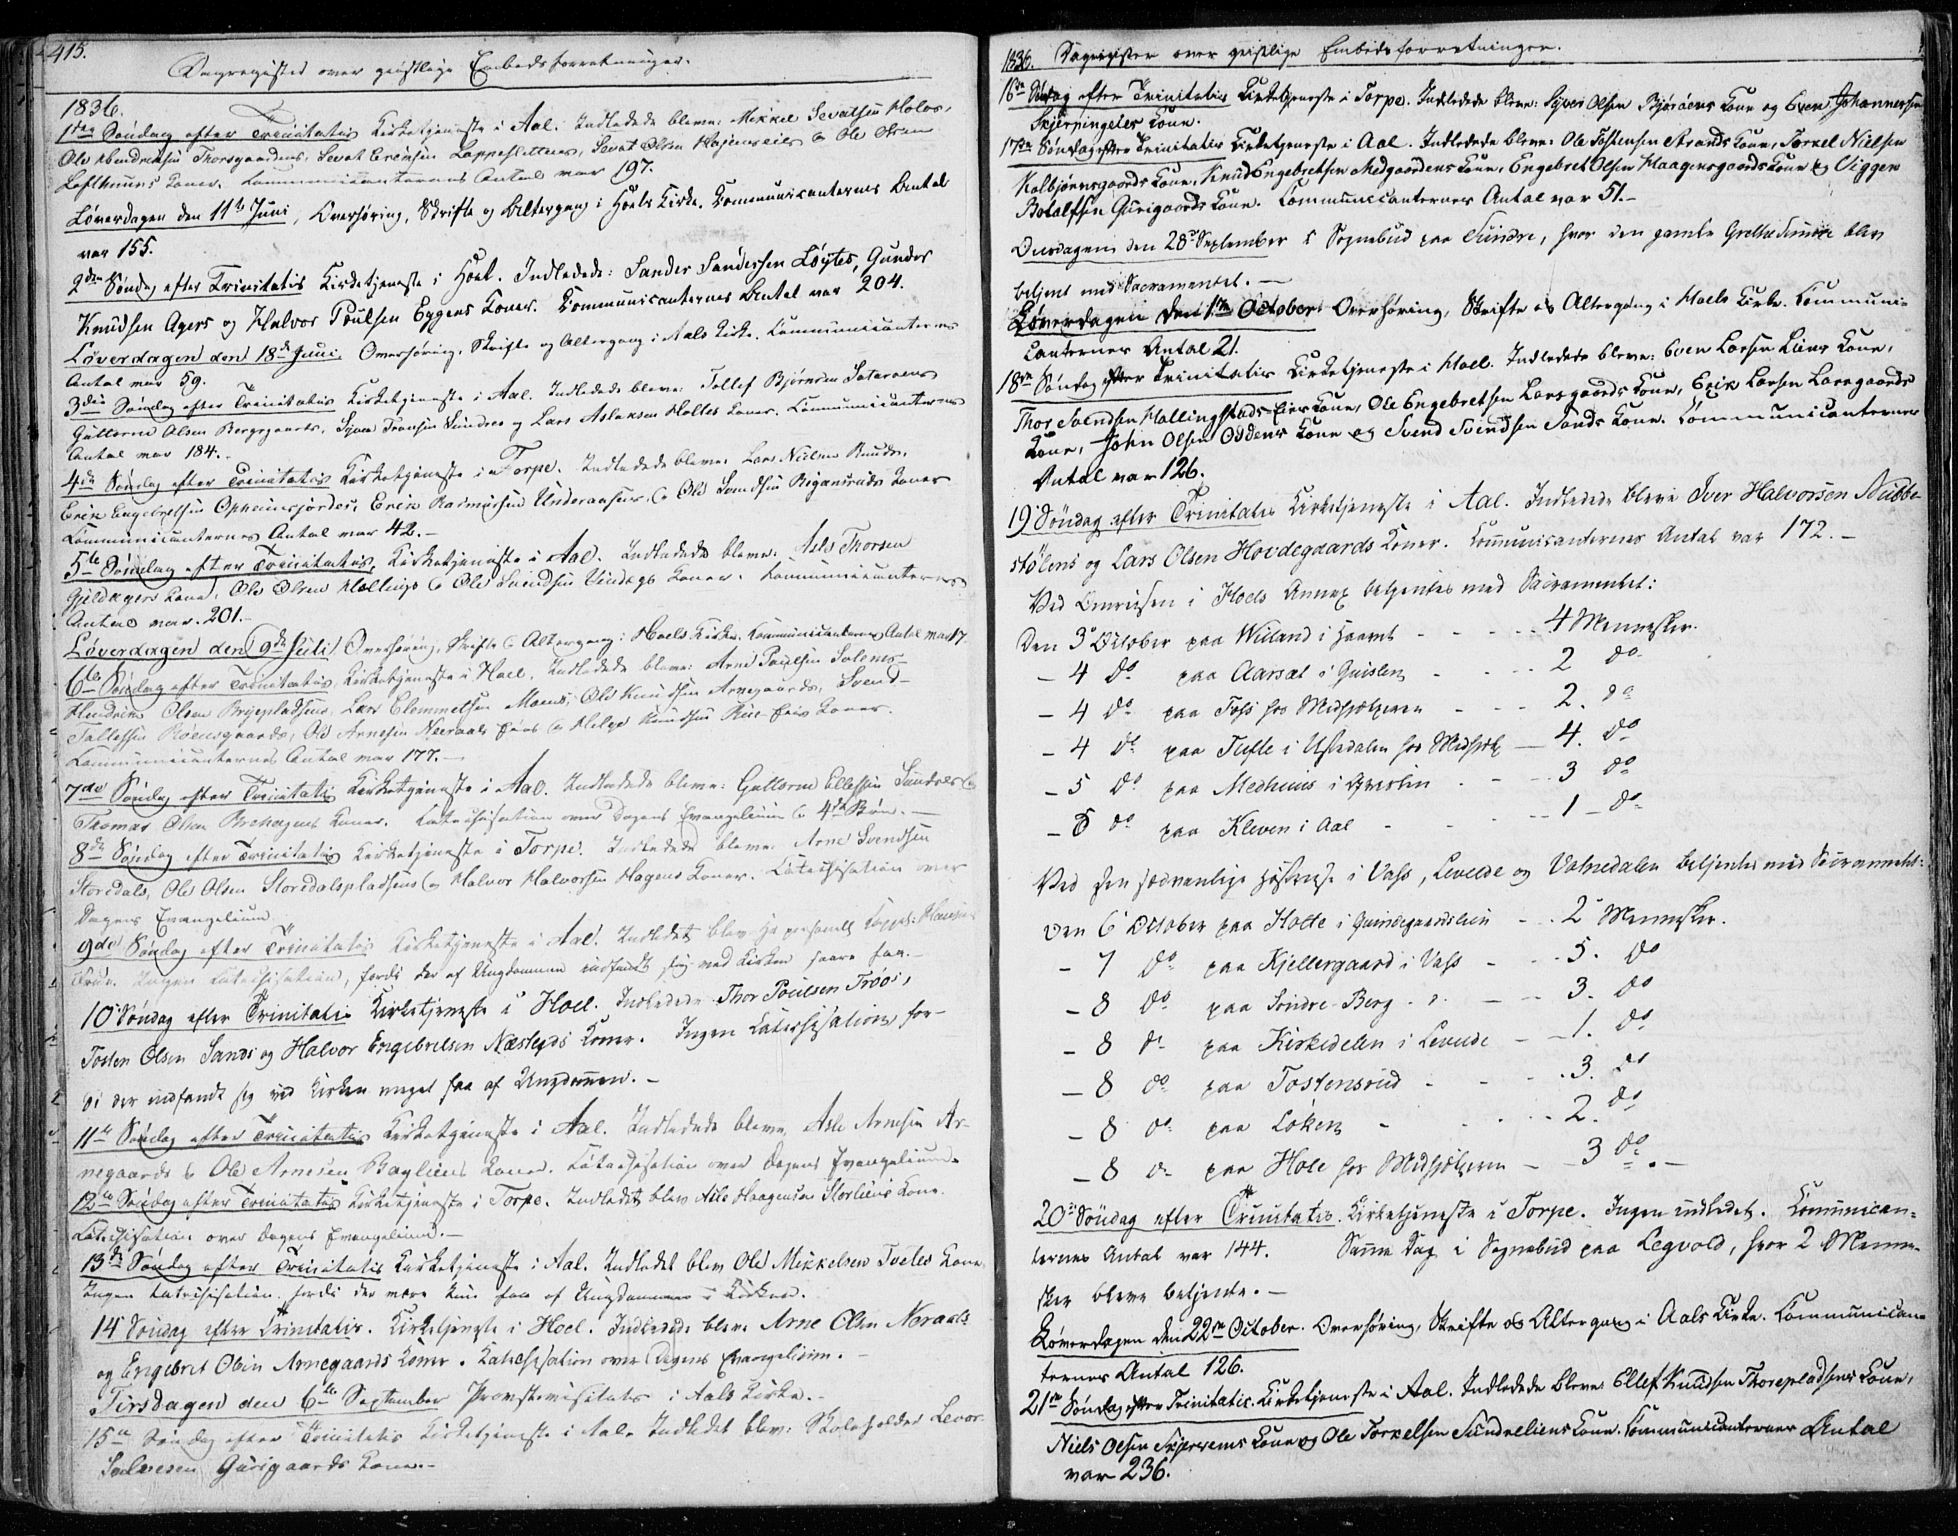 415.
Dagregister over geistlige Embedsforretninger.
1836.
1ste Søndag efter Trinitatis Kirketjeneste i Aal. Indledede bleve: Mikkel Sevatsen Holos,
Ole Hendriksen Thorsgaardens, Sevat Eriksen Lappeslettens, Sevat Olsen
Lofthuuns Koner. Kommunicanternes Antal var 197.
Løverdagen den 11te Juni, Overhøring, Skrifte og Altergang i Hoels Kirke. Kommunicanternes Antal
var 155.
2den Søndag efter Trinitatis Kirketjeneste i Hoel. Indledede: Sander Sandersen Løytes, Gunder
Knudsen Agers og Halvor Poulsen Eygens Koner. Kommunicanternes Antal var 204.
Løverdagen den 18de Juni, Overhøring, Skrifte og Altergang i Aals Kirke. Kommunicanternes
Antal var 59.
3die Søndag efter Trinitatis Kirketjeneste i Aal. Indledede bleve: Tollef Bjørnsen
Guttorm Olsen Bergegaards, Syver Iversen Sundres og Lars Aslaksen Holtes Koner. Kommunicanternes
Antal var 184.
4de Søndag efter Trinitatis Kirketjeneste i Torpe. Indledede bleve: Lars Nielsen Ruuds,
Erik Engebretsen Opheimsjordes, Erik Rasmusen Underaasens, Ole Svendsen Koner
Kommunicanternes Antal var 42.
5te Søndag efter Trinitatis, Kirketjeneste i Aal. Indledede bleve: Asle Thorsen
Gjeldagers Kone, Ole Olsen Hallings Ole Svendsen Koner. Kommunicanternes
Antal var 201.
Løverdagen den 9de Juli Overhøring, Skrifte Altergang i Hoels Kirke. Kommunicanternes Antal var 17
6te Søndag efter Trinitatis, Kirketjeneste i Hoel. Indledede bleve: Arne Paulsen
Hendrik Olsen Bryepladsens, Lars Clemmetsen Moens, Ole Knudsen Arnegaards, Svend
Tollefsen Roensgaards, Ole Arnesen Neeraals Eies Helge Knudsen Koner.
Kommunicanternes Antal var 177.
7de Søndag efter Trinitatis Kirketjeneste i Aal. Indledede bleve: Guttorm Ellefsen Sundres
Thomas Olsen Brehagens Koner. Catechisation over Dagens Evangelium 4de Bøn.
8de Søndag efter Trinitatis Kirketjeneste i Torpe. Indledede bleve: Arne Svendsen
Storedals, Ole Olsen Storedalspladsens Halvor Halvorsen Hagens Koner. Catechisation over
Dagens Evangelium
9de Søndag efter Trinitatis Kirketjeneste i Aal. Indledet blev
Ingen Catechisation, fordi der af Ungdommen indfandt sig ved Kirken saare faa.
10 Søndag efter Trinitatis Kirketjeneste i Hoel. Indledede Thor Poulsen Trøos,
Tosten Olsen Sands og Halvor Engebretsen Næslegds Koner. Ingen Catechisation for-
di der indfandt sig ved Kirken meget faa af Ungdommen.
11te Søndag efter Trinitatis Kirketjeneste i Aal. Indledede bleve, Asle Arnesen Ar-
negaards Ole Arnesen Bagliens Koner. Catechisation over Dagens Evangelium.
12te Søndag efter Trinitatis Kirketjeneste i Torpe. Indledet blev Asle Haagensen Storliens Kone.
Catechisation over Dagens Evangelium.
13de Søndag efter Trinitatis Kirketjeneste i Aal. Indledet blev Ole Mikkelsen Tveites Kone,
Ingen Catechisation fordi der vare kun faa af Ungdommen i Kirken.
14 Søndag efter Trinitatis. Kirketjeneste i Hoel. Indledede bleve Arne Olsen Neraals
og Engebret Olsen Arnegaards Koner. Katechisation over Dagens Evangelium.
Tirsdagen den 6te September Provstevisitats i Aals Kirke.
15de Søndag efter Trinitatis Kirketjeneste i Aal. Indledet blev: Skoleholder Levor
Gurigaards Kone.
1836. Dagregister over geistlige Embedsforretninger.
16de Søndag efter Trinitatis Kirketjeneste i Torpe. Indledede bleve: Syver Olsen Bjøråens Kone og Even Johannessen
Skjerpingeles Kone.
17de Søndag efter Trinitatis Kirketjeneste i Aal. Indledede bleve: Ole Tostensen Strands Kone, Torkel Nielsen
Kolbjørnsgaards Kone, Knud Engebretsen Medgaardens Kone, Engebret Olsen Haagensgaards Kone og Viggen
Botolfsen Gurigaards Kone. Communicanternes Antal var 51.
Onsdagen den 28de September i Sognebud paa Sundre, hvor den gamle Grethe Sundre blev
betjent med Sacramentet.
Løverdagen den 1ste October Overhøring, Skrifte og Altergang i Hoels Kirke. Communi-
canternes Antal 21.
18de Søndag efter Trinitatis Kirketjeneste i Hoel. Indledede bleve: Even Larsen Liens Kone,
Thor Svendsen Hallingstads-Eies Kone, Ole Engebretsen Larsgaards Kone, Erik Larsen Larsgaards
Kone, John Olsen Oddens Kone og Svend Svendsen Sands Kone. Communicanternes
Antal var 126.
19 Søndag efter Trinitatis Kirketjeneste i Aal. Indledede bleve Iver Halvorsen Nubbe-
stølens og Lars Olsen Hovdegaards Koner. Communicanternes Antal var 172.
Ved Omreisen i Hoels Annex betjentes med Sacramentet:
Den 3de October paa Villand i Hoevet - - - 4 Mennesker.
- 4 do paa Aarset i Guislen - - 2 do
- 4 do paa Foss hos Midhjælperen - - - 2. do
- 4 do paa Tufte i Ustedalen hos Midhjælp - 4. do
- 5 do paa Medhuus i - - 3 do
- 6 do paa Kleven i Aal - - - 1 - do
Ved den sædvanlige Høstreise i Vass, Leveld og Vatnedalen betjentes med Sacramentet:
Den 6 October paa Holte i - - 2 Mennesker.
- 7 do paa Kjellergaard i Vass - - 5. do
- 8 do paa Søndre-Berg - - - 3. do
- 8 do paa Kirkedelen i Levelde - 1. do
- 8 do paa Tostensrud - - - 3. do
- 8 do paa Løken - - - 2. do
- 8 do paa Hole hos Midhjælperen - 3 do.
20de Søndag efter Trinitatis. Kirketjeneste i Torpe. Ingen indledet. Communican-
ternes Antal var 144. Samme Dag i Sognebud paa Legvold, hvor 2 Menne-
sker bleve betjente.
Løverdagen den 22de October. Overhøring, Skrifte og Altergang i Aals Kirke. Communican-
ternes Antal 126.
21de Søndag efter Trinitatis. Kirketjeneste i Aal. Indledede bleve: Ellef Knudsen Thorepladsens Kone,
Niels Olsen Skjerrems Kone og Ole Torkelsen Sundreliens Kone. Communicanternes Antal
var 236.